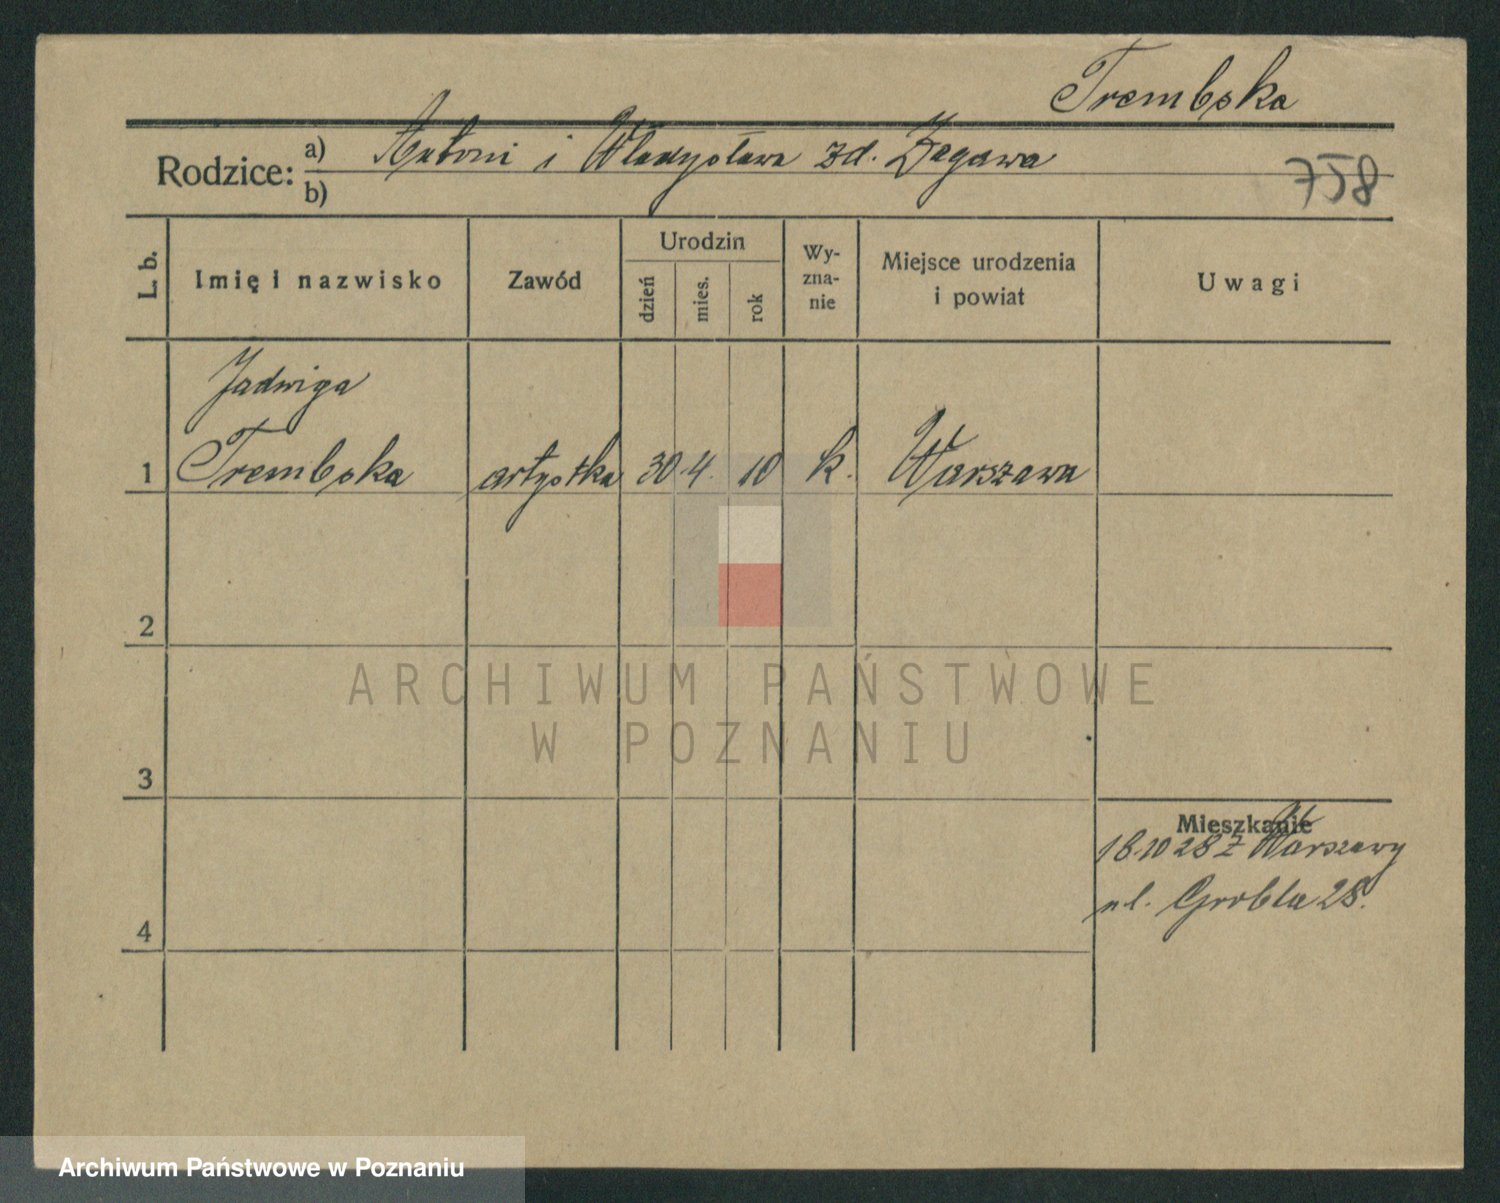 Trembska
Rodzice: a) Antoni i Władysława zd. Zegawa
b)
758
L. b.
Imię i nazwisko
Zawód
Urodzin
dzień
mies.
rok
Wy-
zna-
nie
Miejsce urodzenia
i powiat
Uwagi
Jadwiga
1 Trembska artystka 30 4. 10 k. Warszawa
2
ARCHIWUM PAŃSTWOWE
W POZNANIU
3
Mieszkanie
18.10 28 z Warszawy
ul. Grobla 28.
4
Archiwum Państwowe w Poznaniu